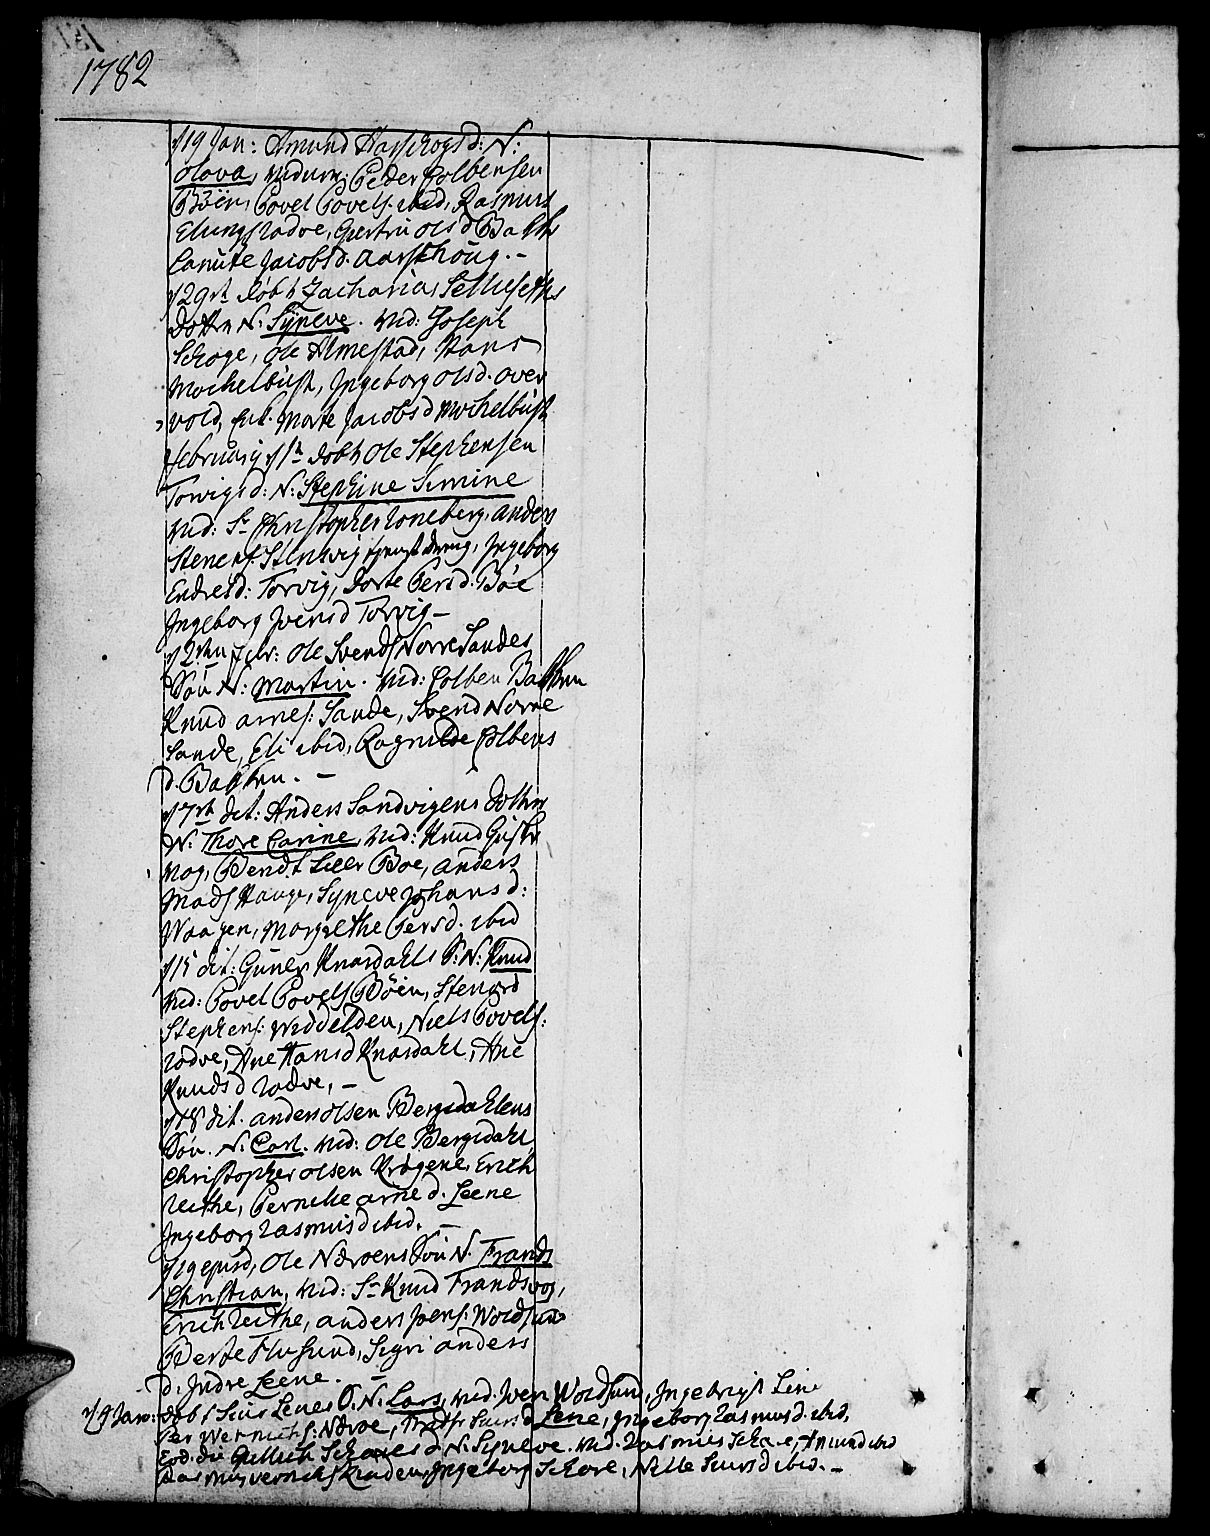 1782
d 19 Jan: Amund Harschogs d: N:
Olova, vidum: Peder Colbensen
Böen, Povel Povels. ibid, Rasmus
Elungs rødve, Giertru Ols d Bakke
Canute Jacobsd. Aarsthoug. -
d 29de døbt Zacharias Sellieseths
Dotter N: Syneve. vid: Joseph
Schoge, Ole Almestad, Hans
Mochelbust, Ingeborg Olsd. over
vold, Marte Jacobs d Mochelbust
Februarij d 1 døbt Ole Stephensen
Torvigs d: N: Stephine Simine
vid: Sr Christopher Roneberg, Anders
Steners. Stenvig, Ingeborg
Endresd: Torvig, Dorte Persd. Böe
Ingeborg Ivers d Torvig -
d 2den Febr: Ole Svends Norre Sandes
Sön N: Martin. vid: Colben Bakken
Knud Arnes: Sande, Svend Norre
Sande, Eli ibid, Ragnilde Colbens
d. Bakken. -
d 7de dit: Anders Sandvigens Dotter
N: Thore Carine, vid: Knud
Bendt Leer Boe, Anders
Mads Hauge, Syneve Johans d:
Waagen, Margrethe Persd. ibid
d 15 dit: Guners Knardahls S: N: Knud
vid: Povel Povels Böen, Stengrd
Stephens: Middelden, Niels Povels:
rødve, Ane Hans d Knardahl, Ane
Knuds d rødve, -
d 18 dit. Anders Olsen Bergsdahlens
Sön. N: Carl. vid: Ole Bergsdahl,
Christopher Olsen Krogene, Erich
Pernille Arne d. Leene
Ingeborg Rasmus d ibid. -
Ole Nærøens Sön N. Frands
Christian, vid: Sr Knud Frands
Erich Anders Ivers: Voldsund
Berte Flusund, Segri Anders
d. Indre Leene. -
d 4 Jan: døbt Siurs Lenes S. N. Lars, vid. Iver Voldsund, Ingebrigt Lene
Per Wernichs: Nærøe, Siurs d Lene, Ingeborg Rasmus d. ibid,
Eod: die Gullich Schaaes d N: Syneve. vid. Rasmus Schaae, Amund ibid
Rasmus Ingeborg Schare, Nille Siurs d ibid. -